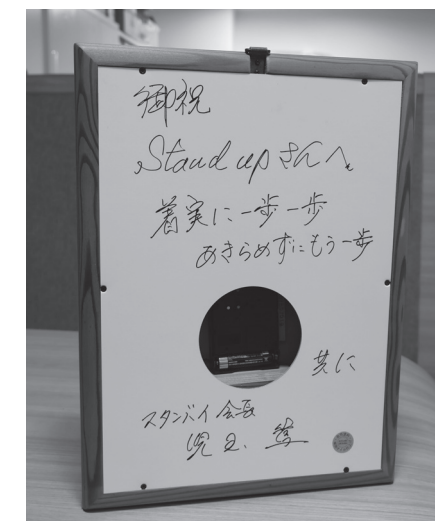 御祝
Stand upさんへ
着実に一歩一歩
あきらめずにもう一歩
共に
スタンバイ 会長
児玉